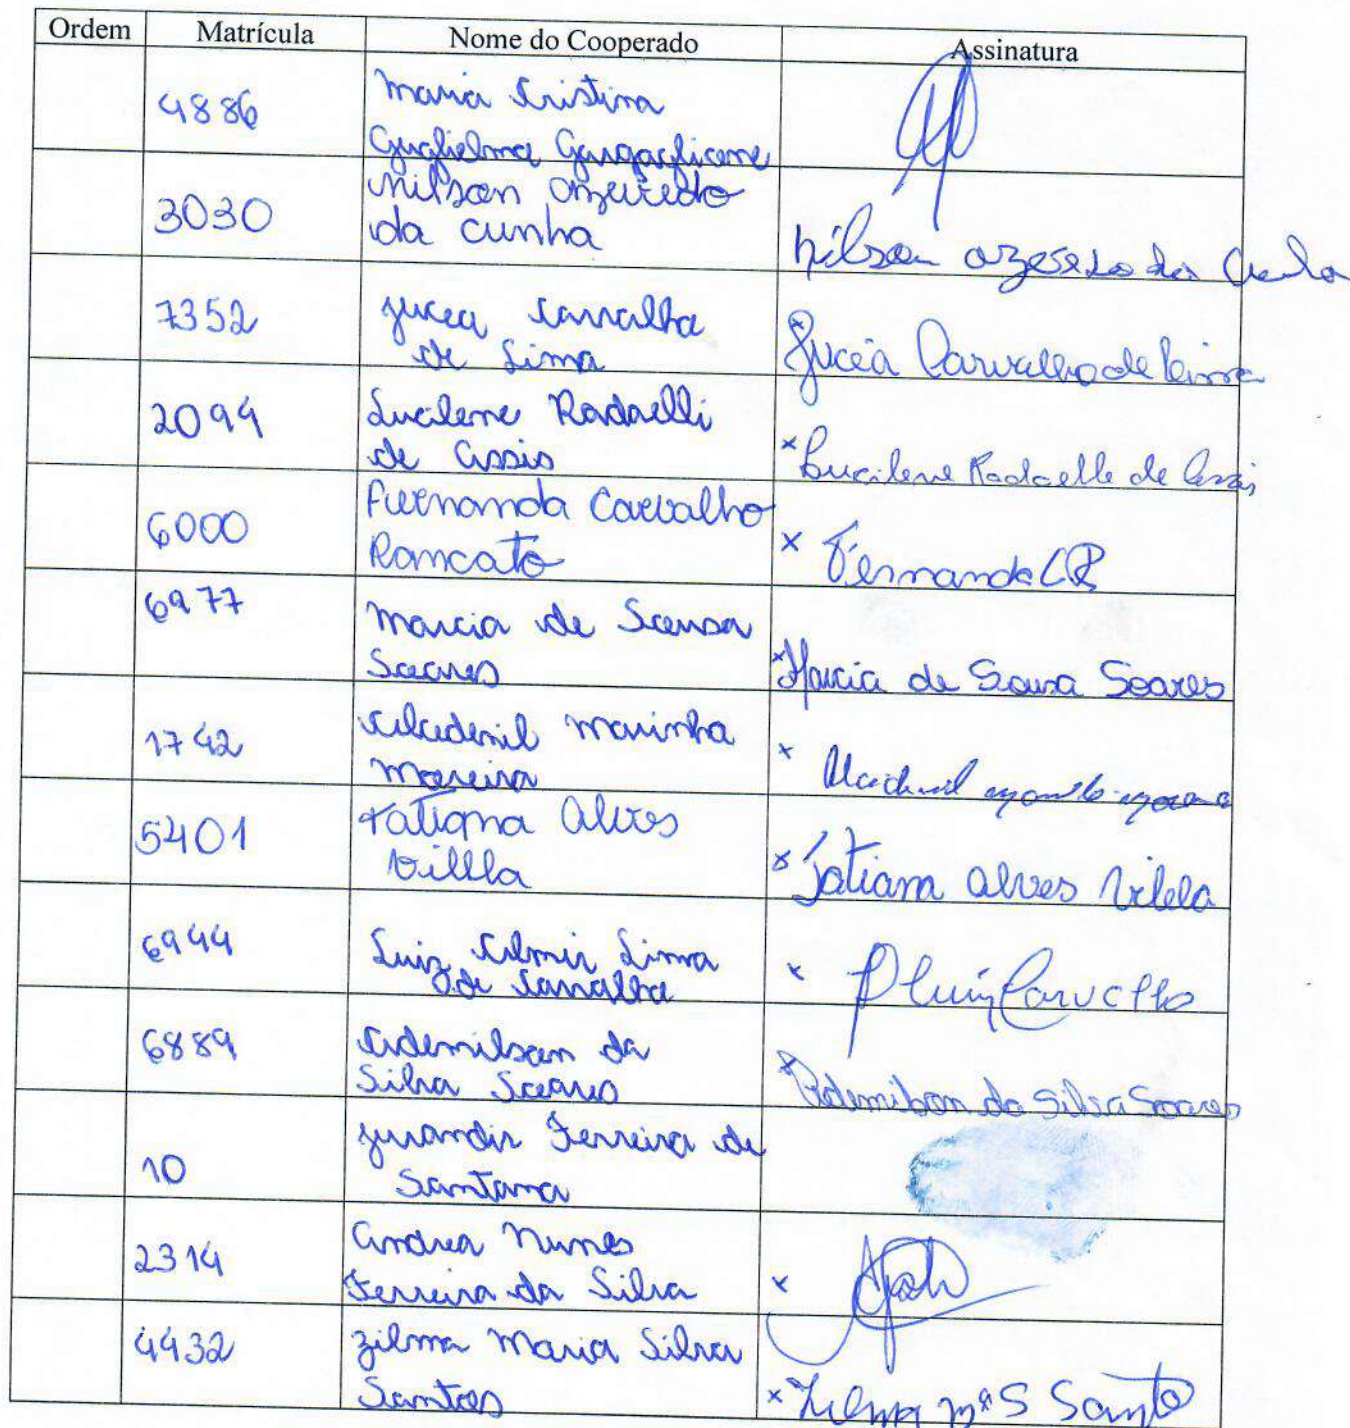 Ordem Matrícula Nome do Cooperado Assinatura
4886 Maria Cristina
Guglielma
3030 Nilson Azeredo
da Cunha
Nilson Azeredo da Cunha
7352 Jucea Carvalho
de Lima
x Jucéa Carvalho de Lima
2094 Lucilene Radaelli
de Assis
x Lucilene Radaelle de Assis
6000 Fernanda Carvalho
Roncato
x Fernanda CR
6977 Marcia de Sousa
Soares
x Marcia de Sousa Soares
1742 Alcedenil Marinho
Moreira
x
5401 Tatiana Alves
Villla
x Tatiana Alves Vilela
6944 Luiz Almir Lima
de Carvalho
x Luiz Carvalho
6889 Ademilson da
Silva Soares
x Ademilson da Silva Soares
10 Jurandir Ferreira de
Santana
2314 Andrea Nunes
Ferreira da Silva
x
4432 Zilma Maria Silva
Santos
x Zilma Mª S Santo